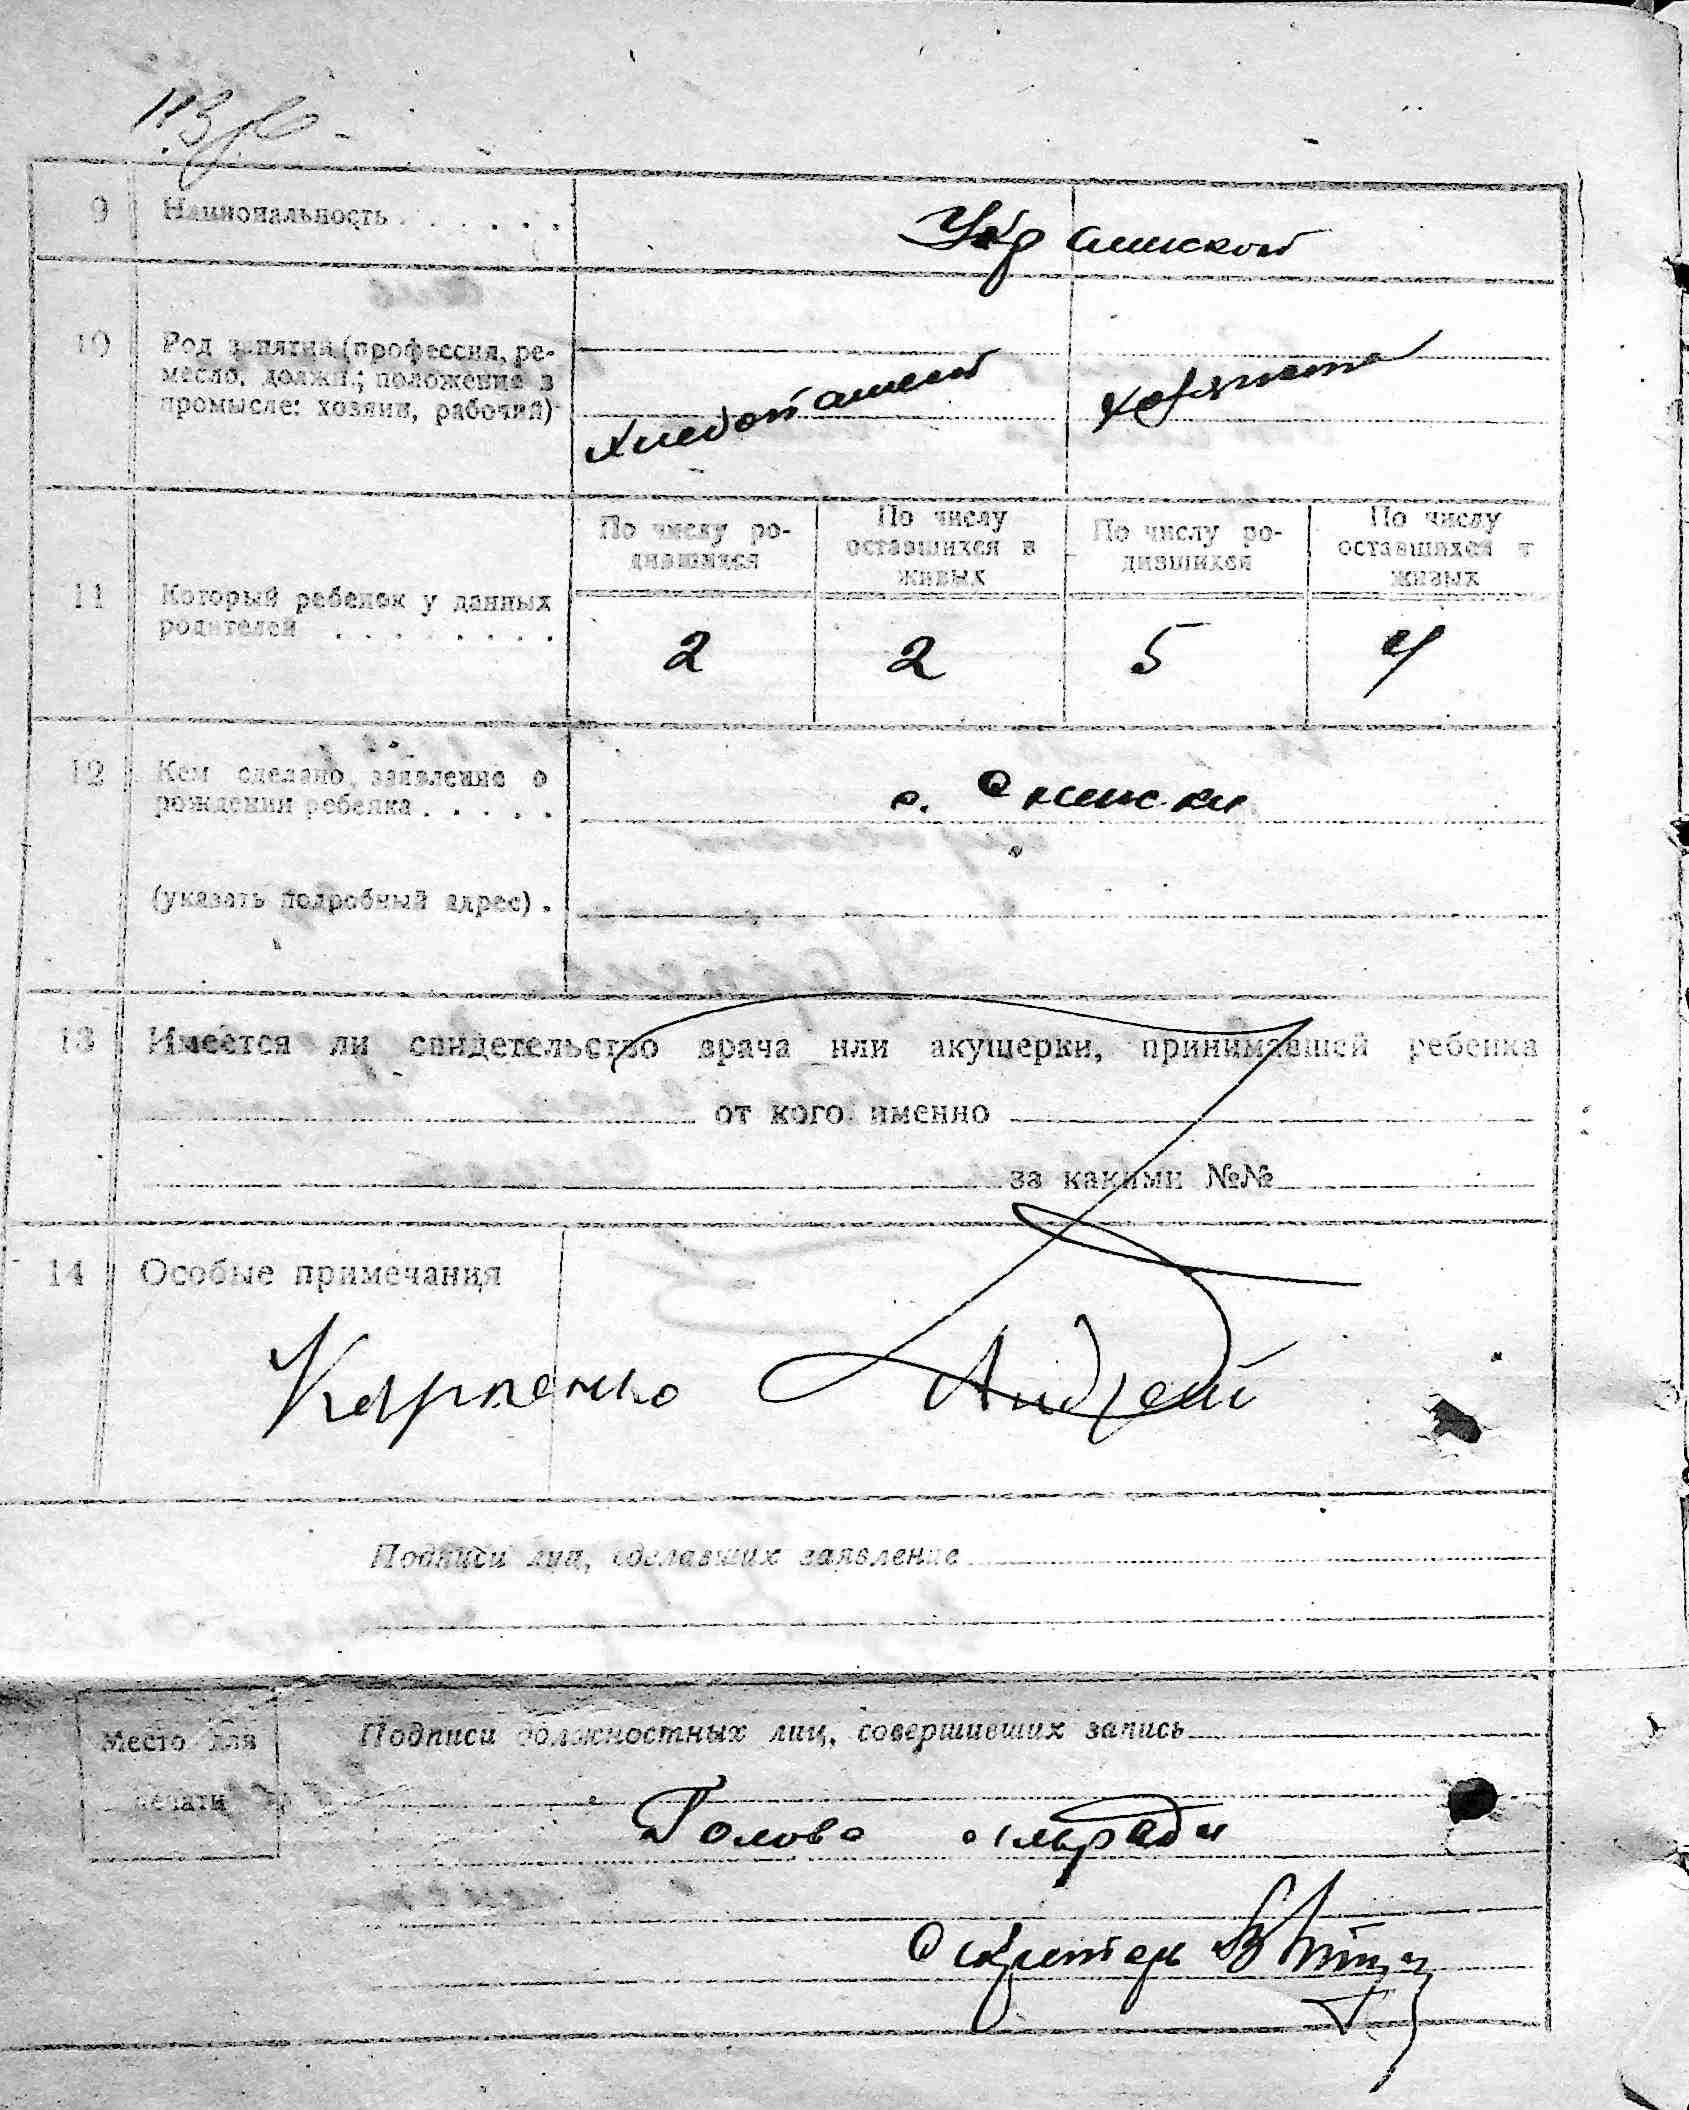 9 Национальность . . . . . .
Украинской
10 Род занятия (профессия, ре-
месло, должн.; положение в
промысле: хозяин, рабочий)
Хлебопашест
11 Который ребенок у данных
родителей . . . . . . . .
По числу ро-
дившихся
По числу
оставшихся в
живых
По числу ро-
дившихся
По числу
оставшихся в
живых
2 2 5 4
12 Кем сделано заявление о
рождении ребенка . . . . .
(указать подробный адрес) .
13 Имеется ли свидетельство врача или акушерки, принимавшей ребенка
от кого именно
за какими №№
14 Особые примечания
Карпенко Андрей
Подписи лиц, сделавших заявление
Место для
печати
Подписи должностных лиц, совершивших запись
Голова сільради
Секретарь